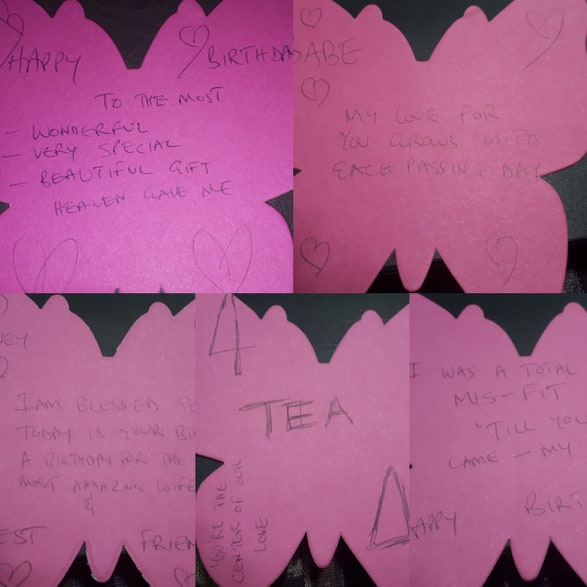 HAPPY
BIRTHDA
TO THE MOST
- WONDERFUL
- VERY SPECIAL
- BEAUTIFUL GIFT
HEAVEN GAVE ME
ABE
MY LOVE FOR
YOU GROWS WITH
EACH PASSING DAY
NEY
I AM BLESSED
TODAY IS YOUR BI
A BIRTHDAY FOR THE
MOST AMAZING WIFE
&
EST
FRIEN
4
TEA
YOU'RE THE
CENTER OF OUR
LOVE
I WAS A TOTAL
MIS-FIT
'TILL YOU
CAME - MY
APPY
BIRT